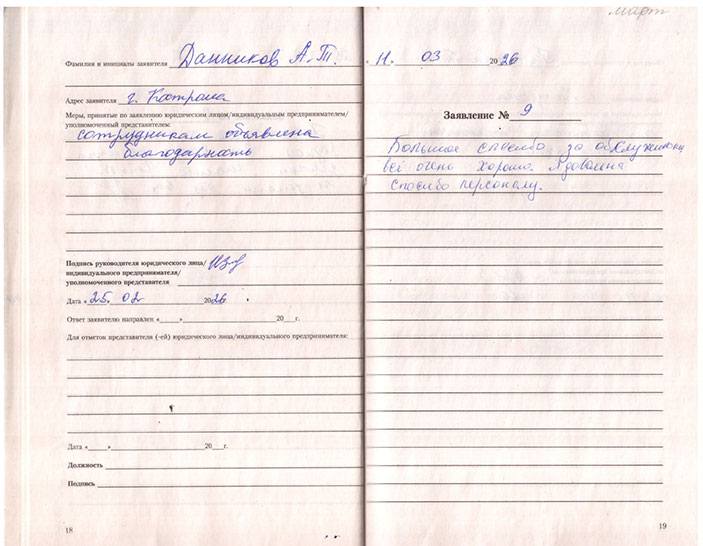 Фамилия и инициалы заявителя Данников А.Т.
Адрес заявителя г. Кострома
Меры, принятые по заявлению юридическим лицом/индивидуальным предпринимателем/
уполномоченный представителем:
сотрудникам объявлена
благодарность
Подпись руководителя юридического лица/
индивидуального предпринимателя/
уполномоченного представителя
Дата « 25. 02 2026 .
Ответ заявителю направлен «_____»____________20___г.
Для отметок представителя (-ей) юридического лица/индивидуального предпринимателя:
Дата «_____»____________20___г.
Должность
Подпись
18
март
11. 03 2026
Заявление № 9
Большое спосибо за обслуживан
всё очень хорошо. Я довольна
спосибо персоналу.
19